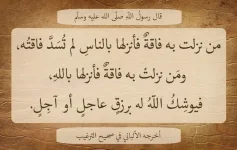 قال رسول الله صلّى الله عليه وسلّم
من نزلت به فاقةٌ فأنزلها بالناسِ لم تُسَدَّ فاقتُه،
ومَن نزلتْ به فاقةٌ فأنزلها باللهِ،
فيوشِكُ اللهُ له برزقٍ عاجلٍ أو آجِلٍ.
أخرجه الألباني في صحيح الترغيب